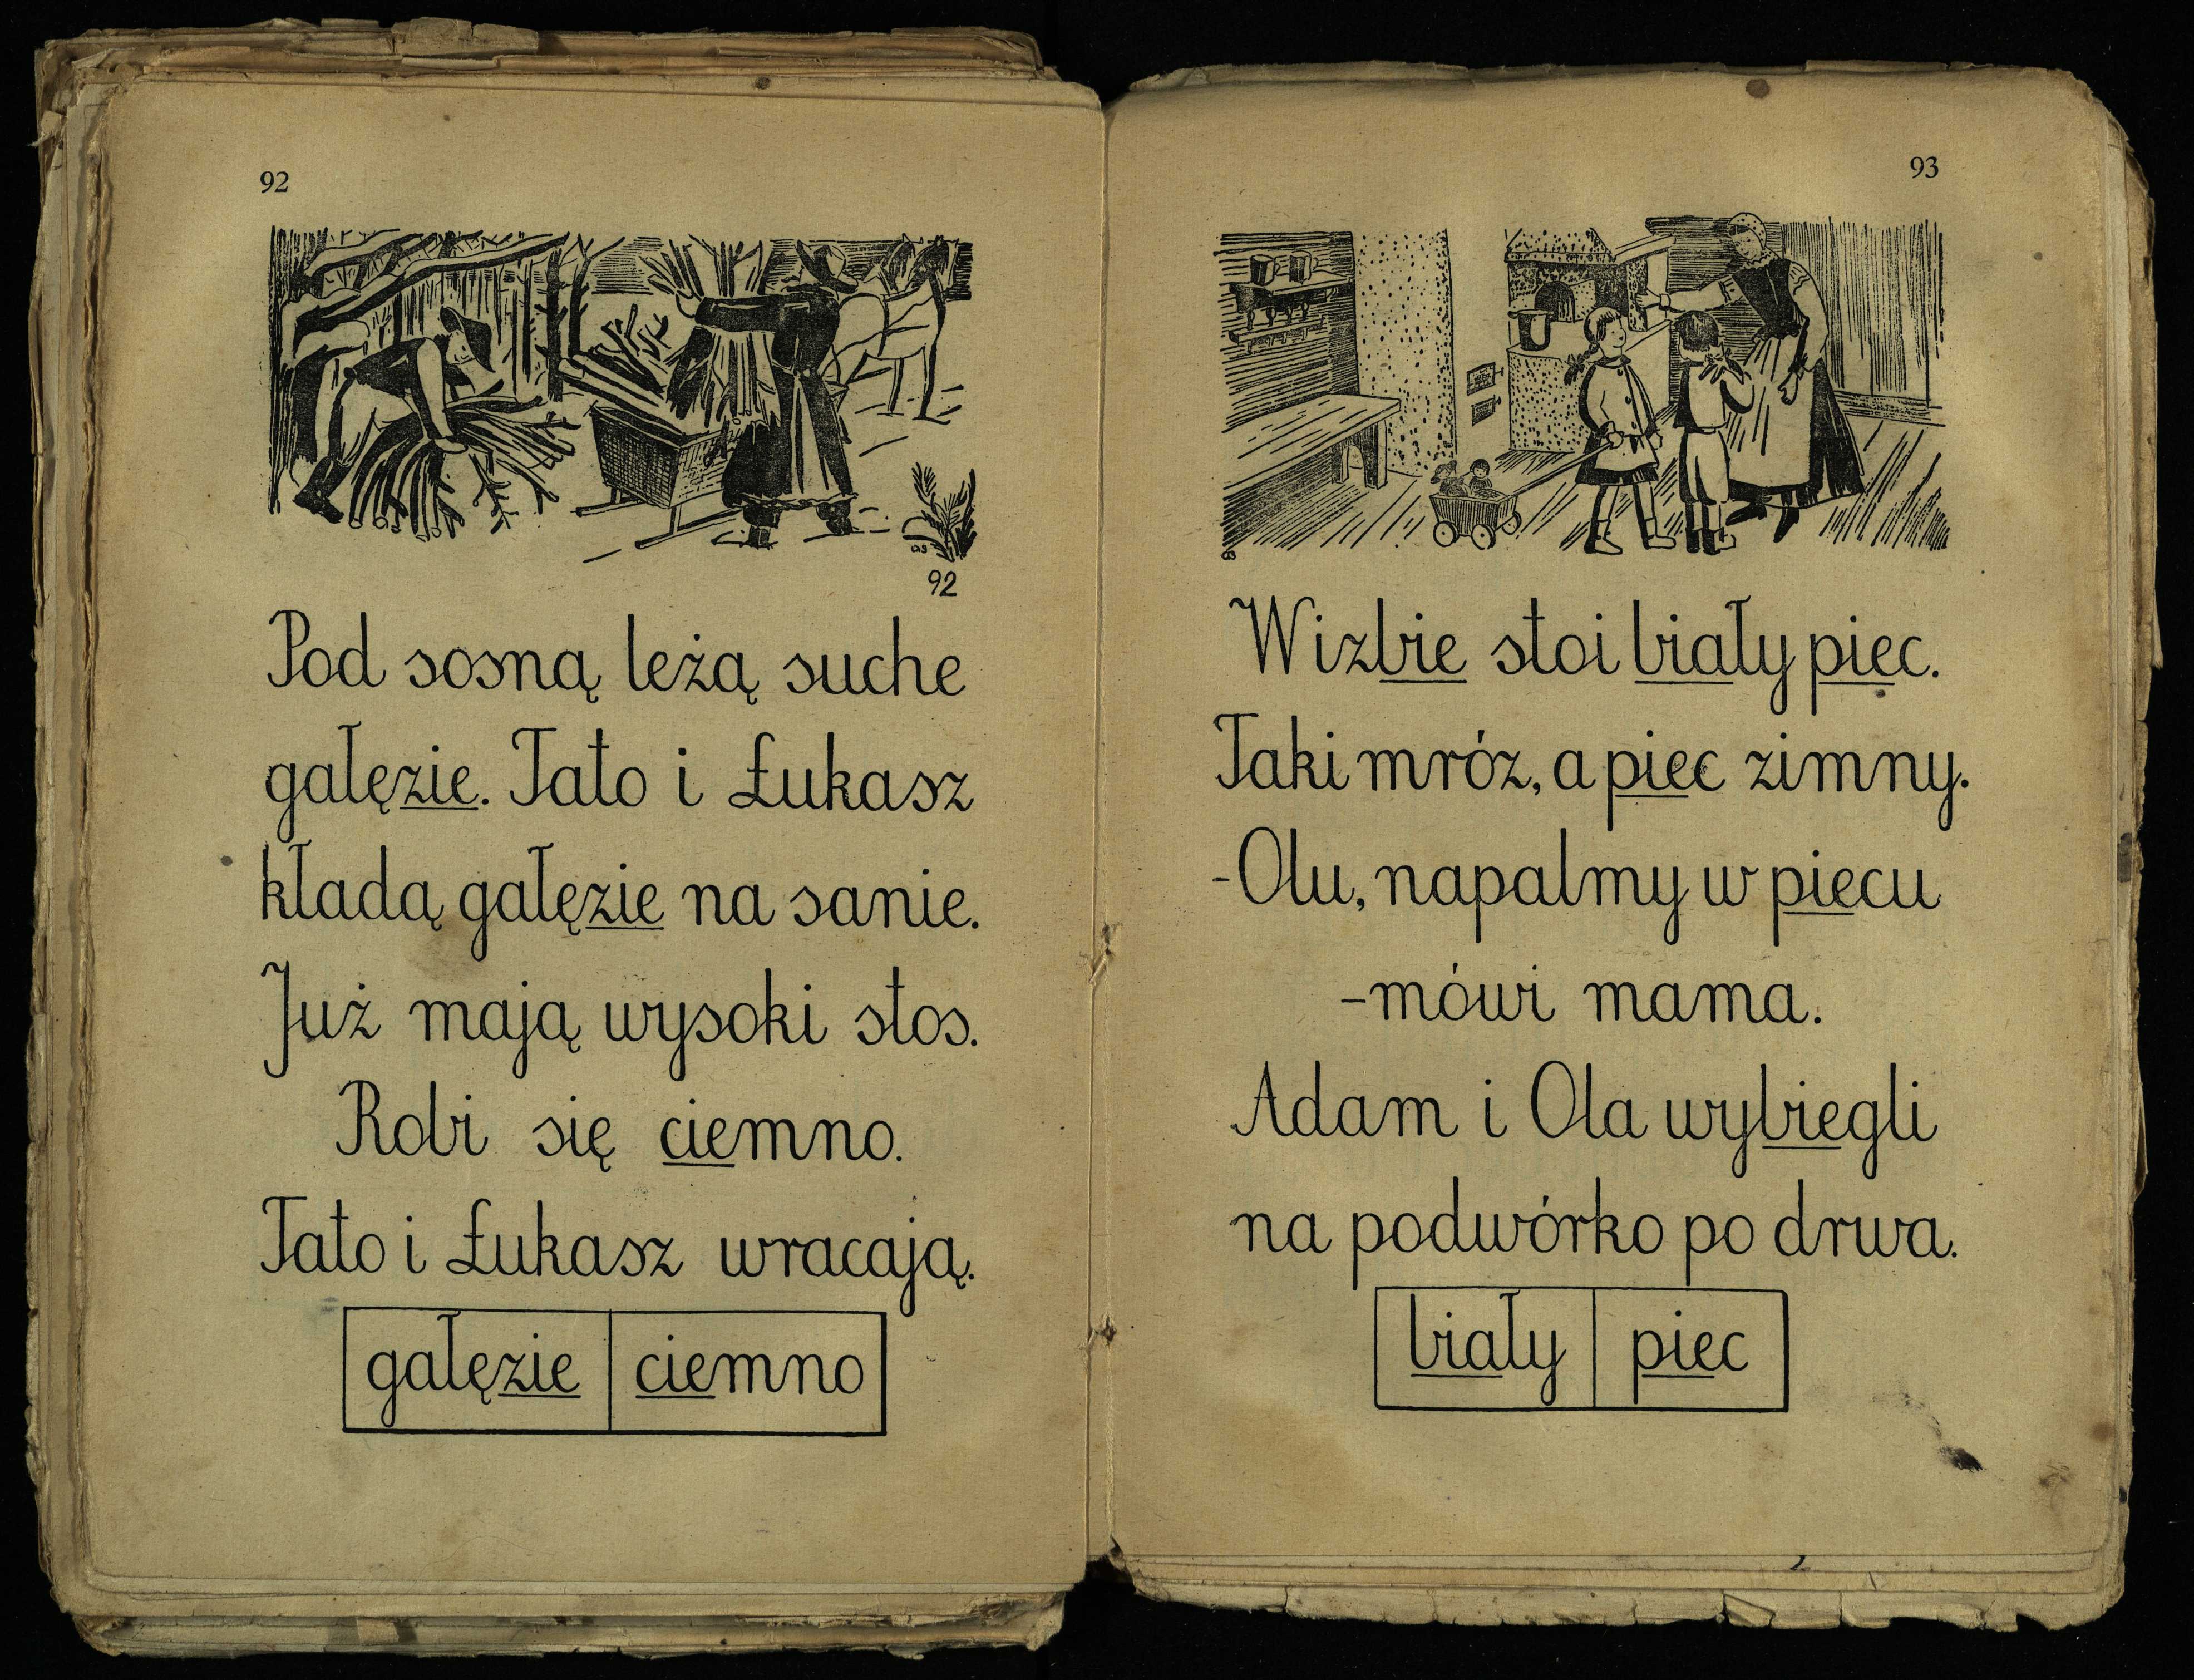 92
92
Pod sosną leżą suche
gałęzie. Tato i Łukasz
kładą gałęzie na sanie.
Już mają wysoki stos.
Robi się ciemno.
Tato i Łukasz wracają.
gałęzie ciemno
93
W izbie stoi biały piec.
Taki mróz, a piec zimny.
-Olu, napalmy w piecu
-mówi mama.
Adam i Ola wybiegli
na podwórko po drwa.
biały piec